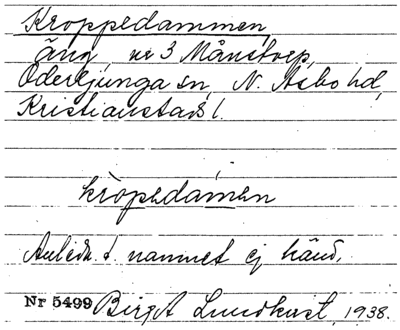 Kroppedammen,
äng, nr 3 Månstorp,
Oderljunga sn, N. Åsbo hd,
Kristianstads l.
kròpedamen
Anledn. t. namnet ej känd.
Nr 5499 Birgit Lundkvist, 1938.